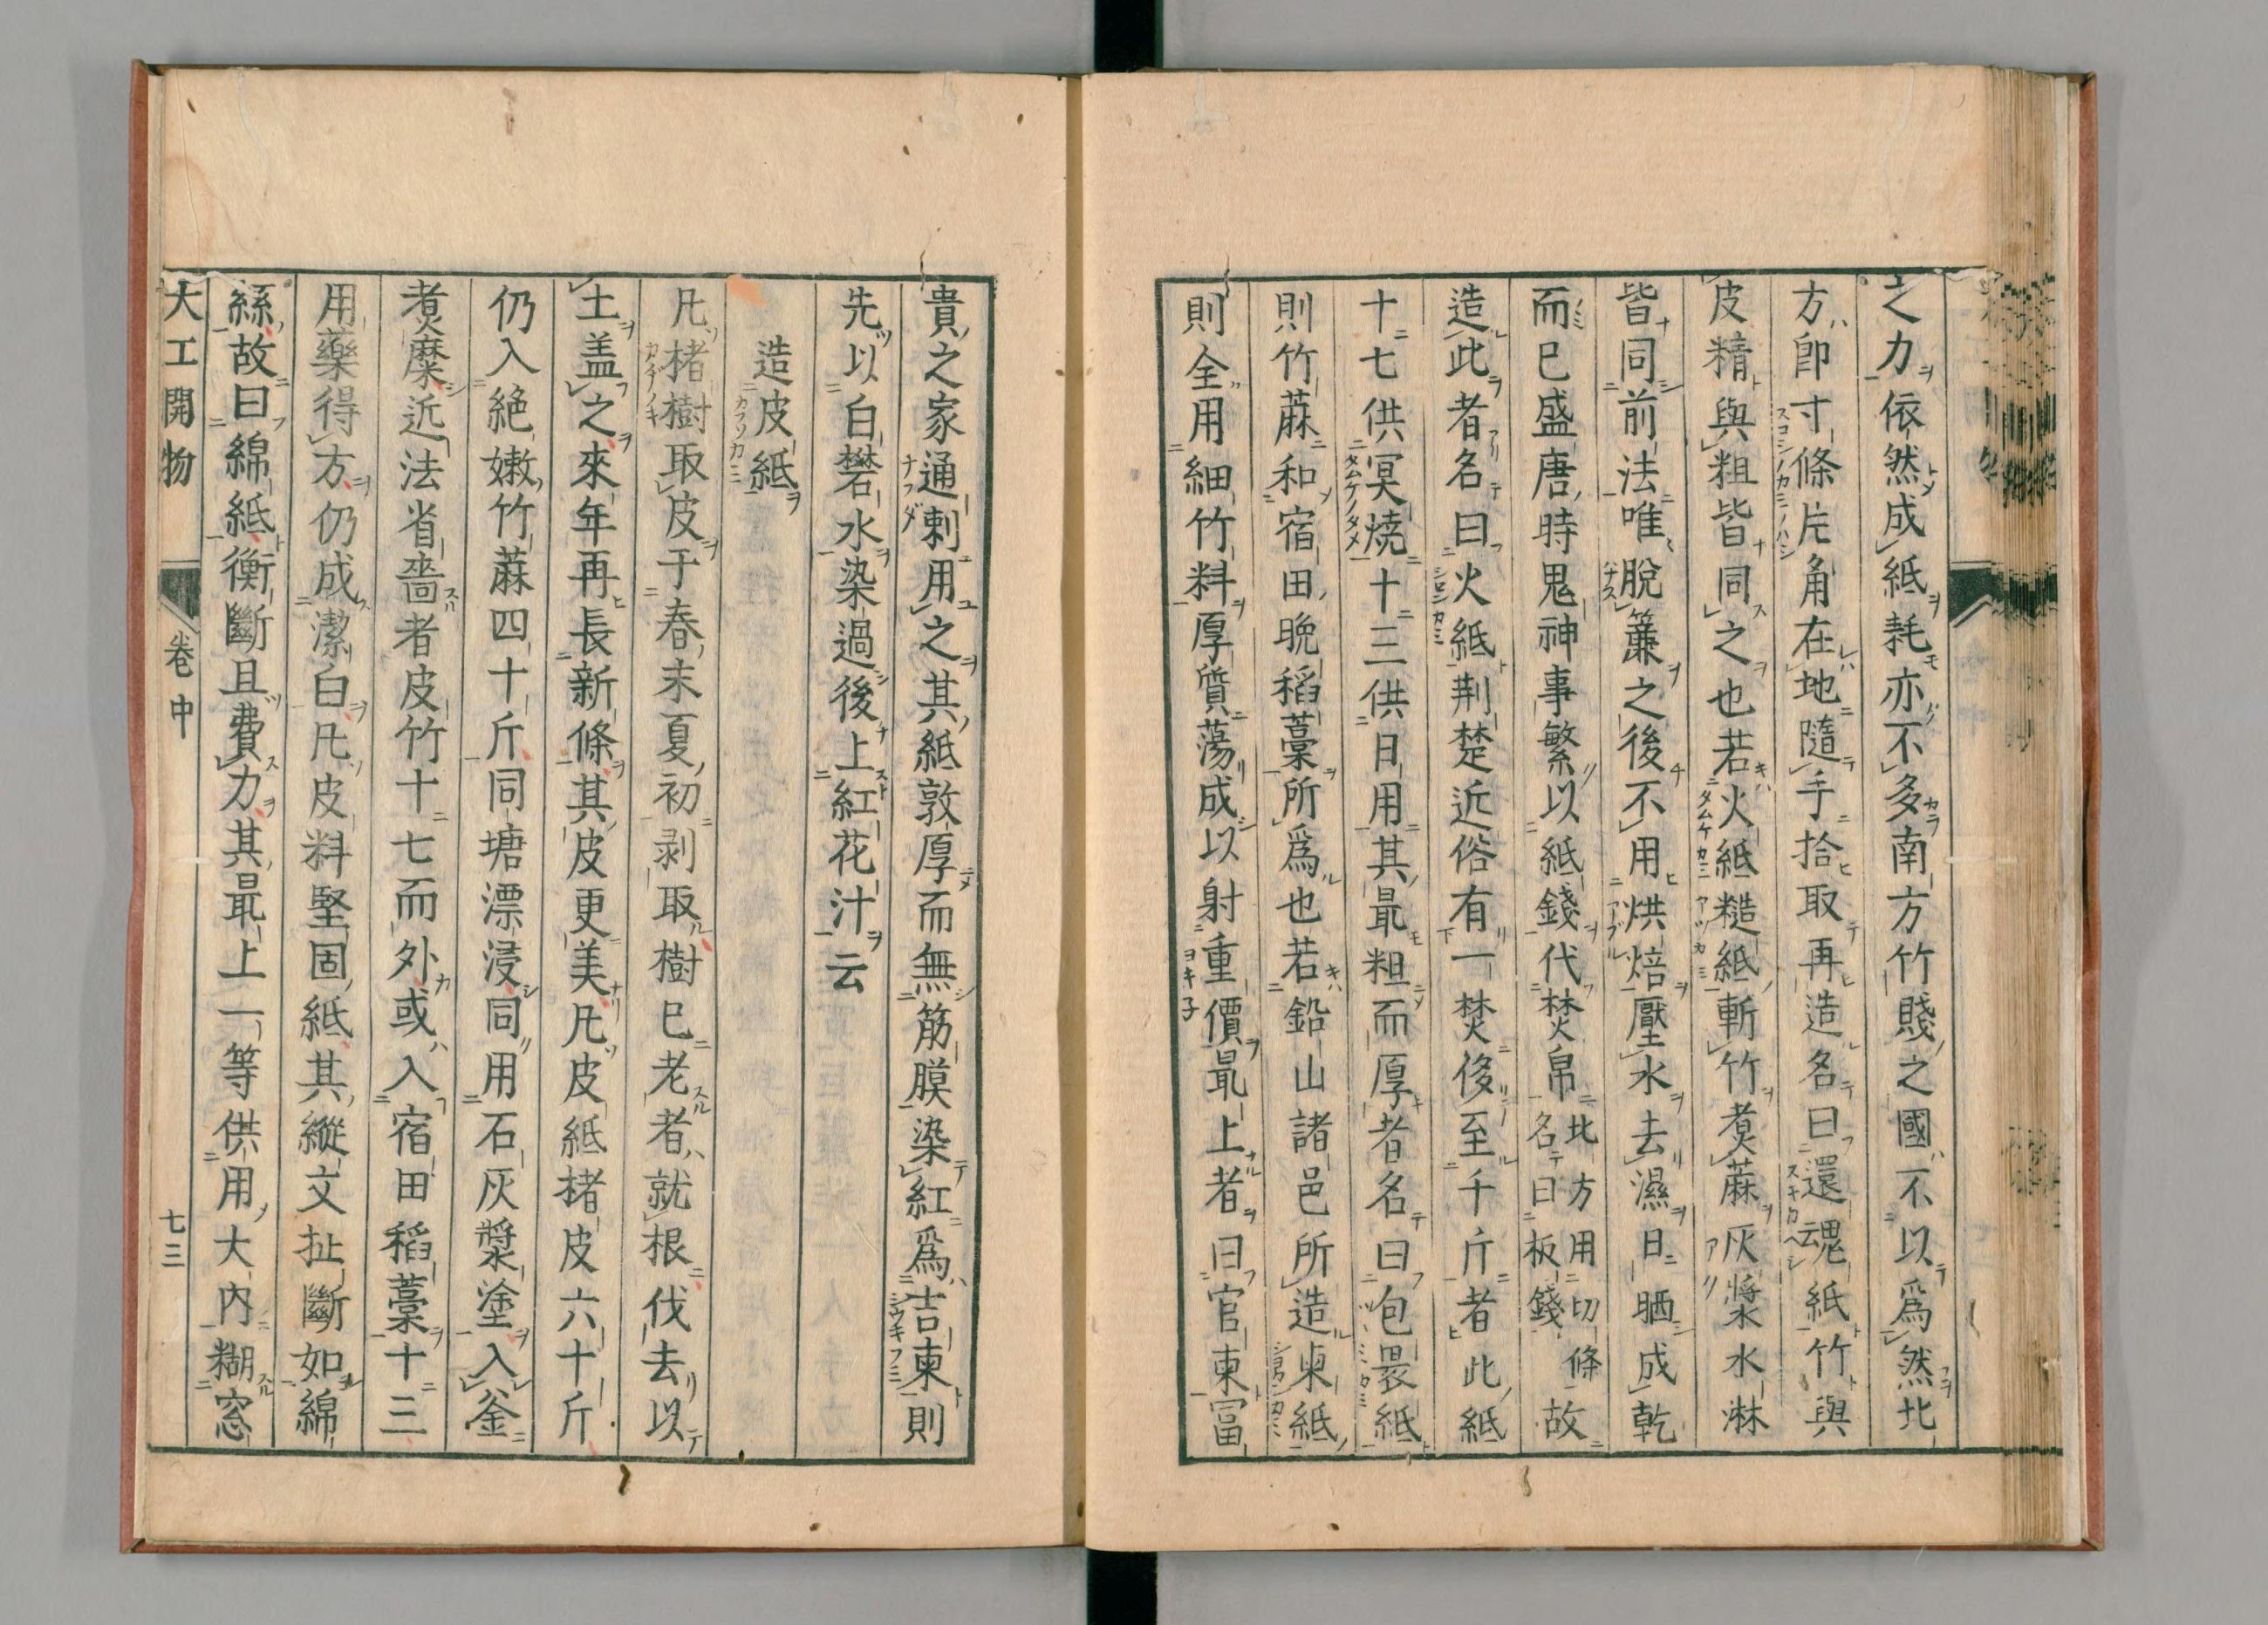 之力依然成紙耗亦不多南方竹賤之國不以爲然北
方卽寸條片角在地隨手拾取再造名曰還魂紙竹與
皮精與粗皆同之也若火紙糙紙斬竹煑蔴灰漿水淋
皆同前法唯脫簾之後不用烘焙壓水去濕日晒成乾
而已盛唐時鬼神事繁以紙錢代焚帛北方用切條名曰板錢故
造此者名曰火紙荆楚近俗有一焚侈至千斤者此紙
十七供冥燒十三供日用其最粗而厚者名曰包裹紙
則竹蔴和宿田晩稻藁所爲也若鉛山諸邑所造柬紙
則全用細竹料厚質蕩成以射重價最上者曰官柬富
貴之家通刺用之其紙敦厚而無筋膜染紅爲吉柬則
先以白礬水染過後上紅花汁云
造皮紙
凡楮樹取皮于春末夏初剥取樹已老者就根伐去以
土盖之來年再長新條其皮更美凡皮紙楮皮六十斤
仍入絶嫩竹蔴四十斤同塘漂浸同用石灰漿塗入釜
煑糜近法省嗇者皮竹十七而外或入宿田稻藁十三
用藥得方仍成潔白凡皮料堅固紙其縱文扯斷如綿
絲故曰綿紙衡斷且費力其最上一等供用大内糊窓
天工開物 卷中 七三